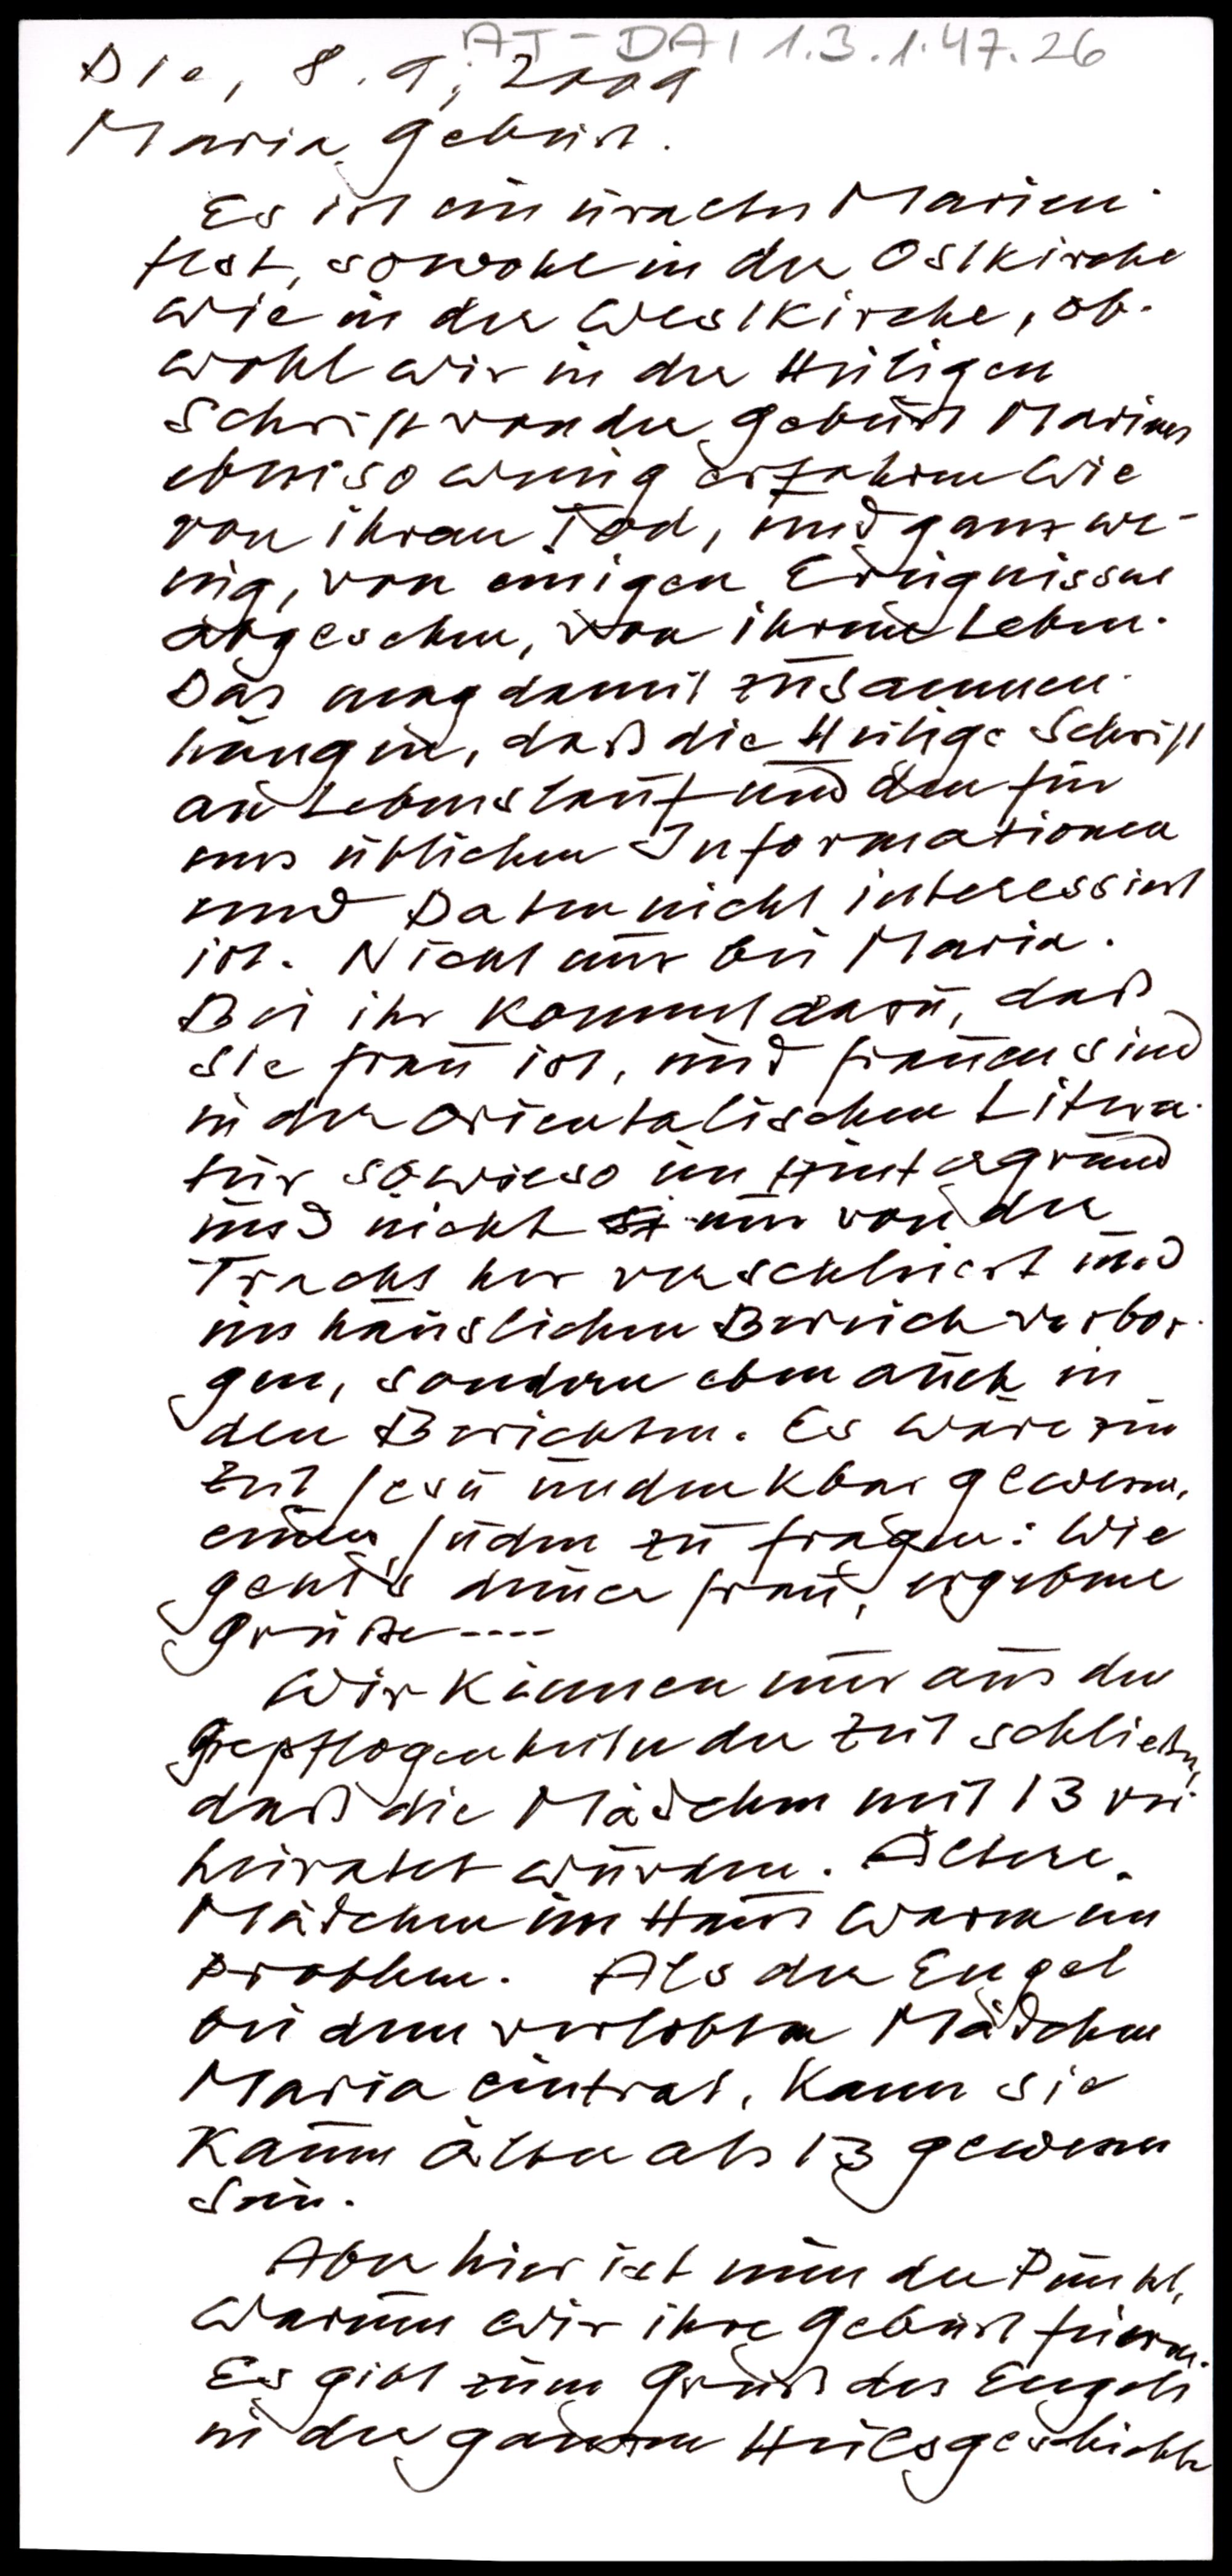 AT-DAI 1.3.1.47.26
Die, 8.9; 2009
Maria Geburt.
Es ist ein uraltes Marien-
fest, sowohl in der Ostkirche
wie in der Westkirche, ob-
wohl wir in der Heiligen
Schrift von der Geburt Mariens
ebenso wenig erfahren wie
von ihrem Tod, und ganz we-
nig, von einigen Ereignissen
abgesehen, von ihrem Leben.
Das mag damit zusammen-
hängen, daß die Heilige Schrift
an Lebenslauf und den für
uns üblichen Informationen
und Daten nicht interessiert
ist. Nicht nur bei Maria.
Bei ihr kommt dazu, daß
sie Frau ist, und Frauen sind
in der orientalischen Litera-
tur sowieso im Hintergrund
und nicht nur von der
Tracht her verschleiert und
im häuslichen Bereich verbor-
gen, sondern eben auch in
den Berichten. Es wäre zur
Zeit Jesu undenkbar gewesen,
einen Juden zu fragen: Wie
geht's deiner Frau, ergebene
Grüße ----
Wir können nur aus den
Gepflogenheiten der Zeit schließen,
daß die Mädchen mit 13 ver-
heiratet wurden. Ältere
Mädchen im Haus waren ein
Problem. Als der Engel
bei dem verlobten Mädchen
Maria eintrat, kann sie
kaum älter als 13 gewesen
sein.
Aber hier ist nun der Punkt,
warum wir ihre Geburt feiern.
Es gibt zum Gruß des Engels
in der ganzen Heilsgeschichte